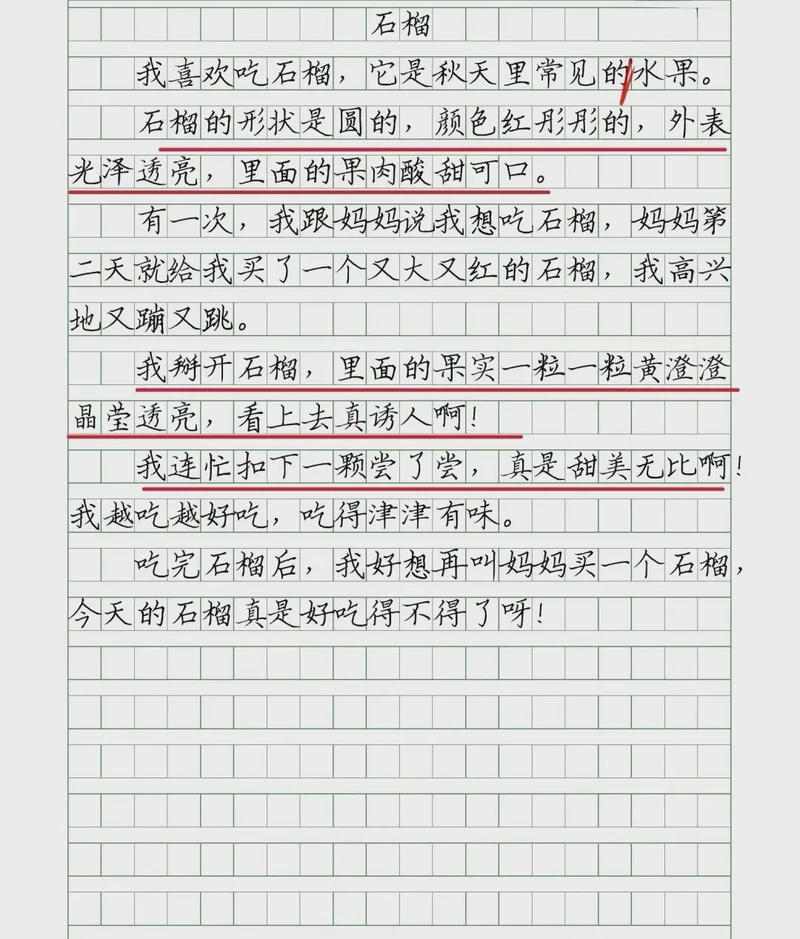 石榴
我喜欢吃石榴，它是秋天里常见的水果。
石榴的形状是圆的，颜色红彤彤的，外表
光泽透亮，里面的果肉酸甜可口。
有一次，我跟妈妈说我想吃石榴，妈妈第
二天就给我买了一个又大又红的石榴，我高兴
地又蹦又跳。
我掰开石榴，里面的果实一粒一粒黄澄澄
晶莹透亮，看上去真诱人啊！
我连忙扣下一颗尝了尝，真是甜美无比啊！
我越吃越好吃，吃得津津有味。
吃完石榴后，我好想再叫妈妈买一个石榴，
今天的石榴真是好吃得不得了呀！